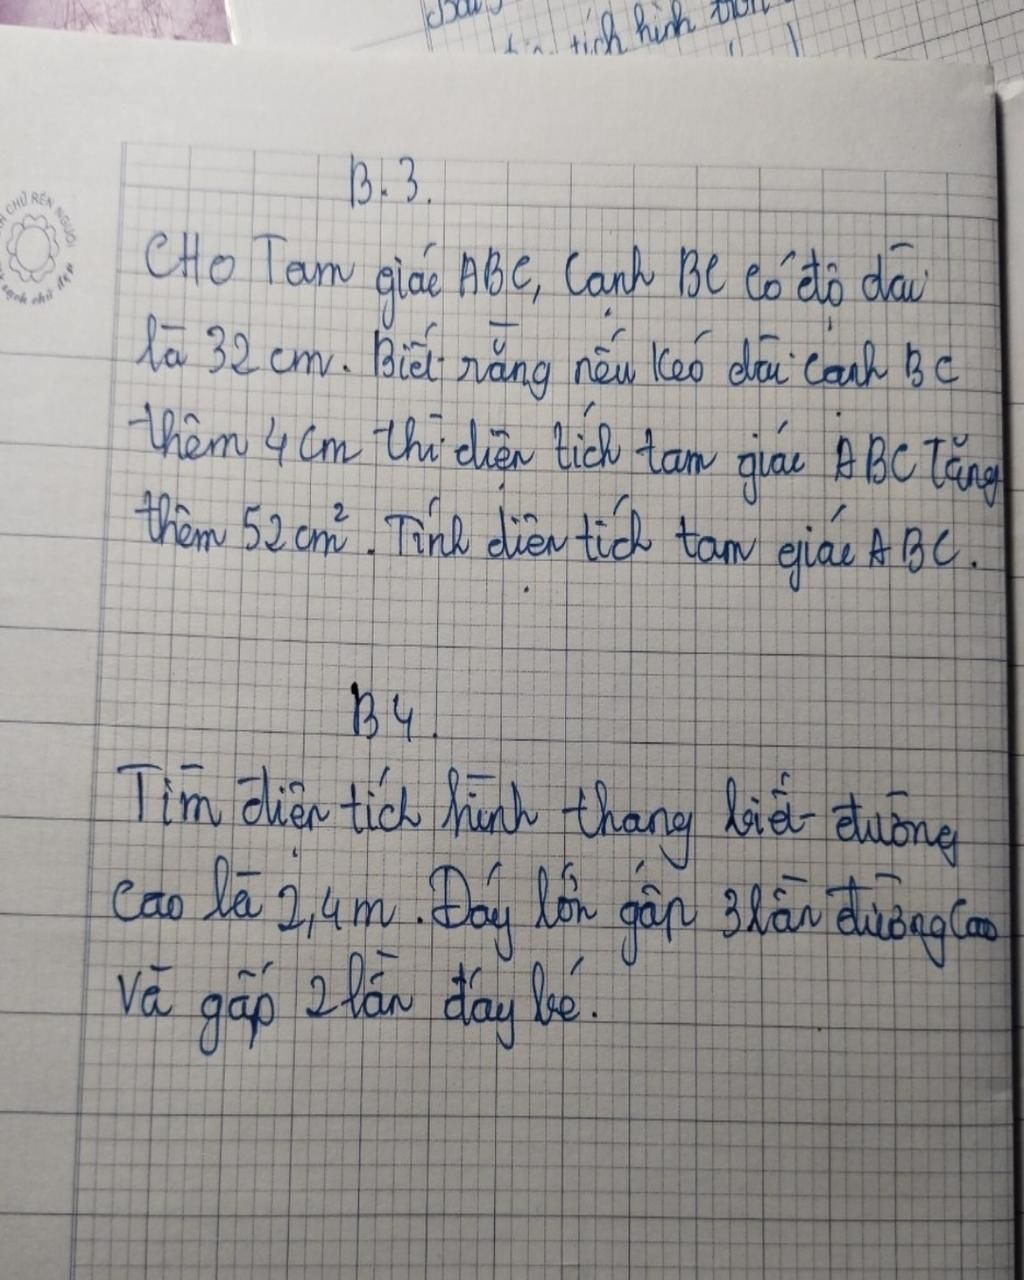 tích hình
B.3.
CHO Tam giác ABC, Cạnh BC có độ dài
là 32 cm. Biết rằng nếu kéo dài cạnh BC
thêm 4 cm thì diện tích tam giác ABC Tăng
thêm 52 cm². Tính diện tích tam giác ABC.
B4.
Tìm diện tích hình thang biết đường
cao là 2,4 m. Đáy lớn gấp 3 lần đường cao
và gấp 2 lần đáy bé.
CHỮ RÈN NGƯỜI